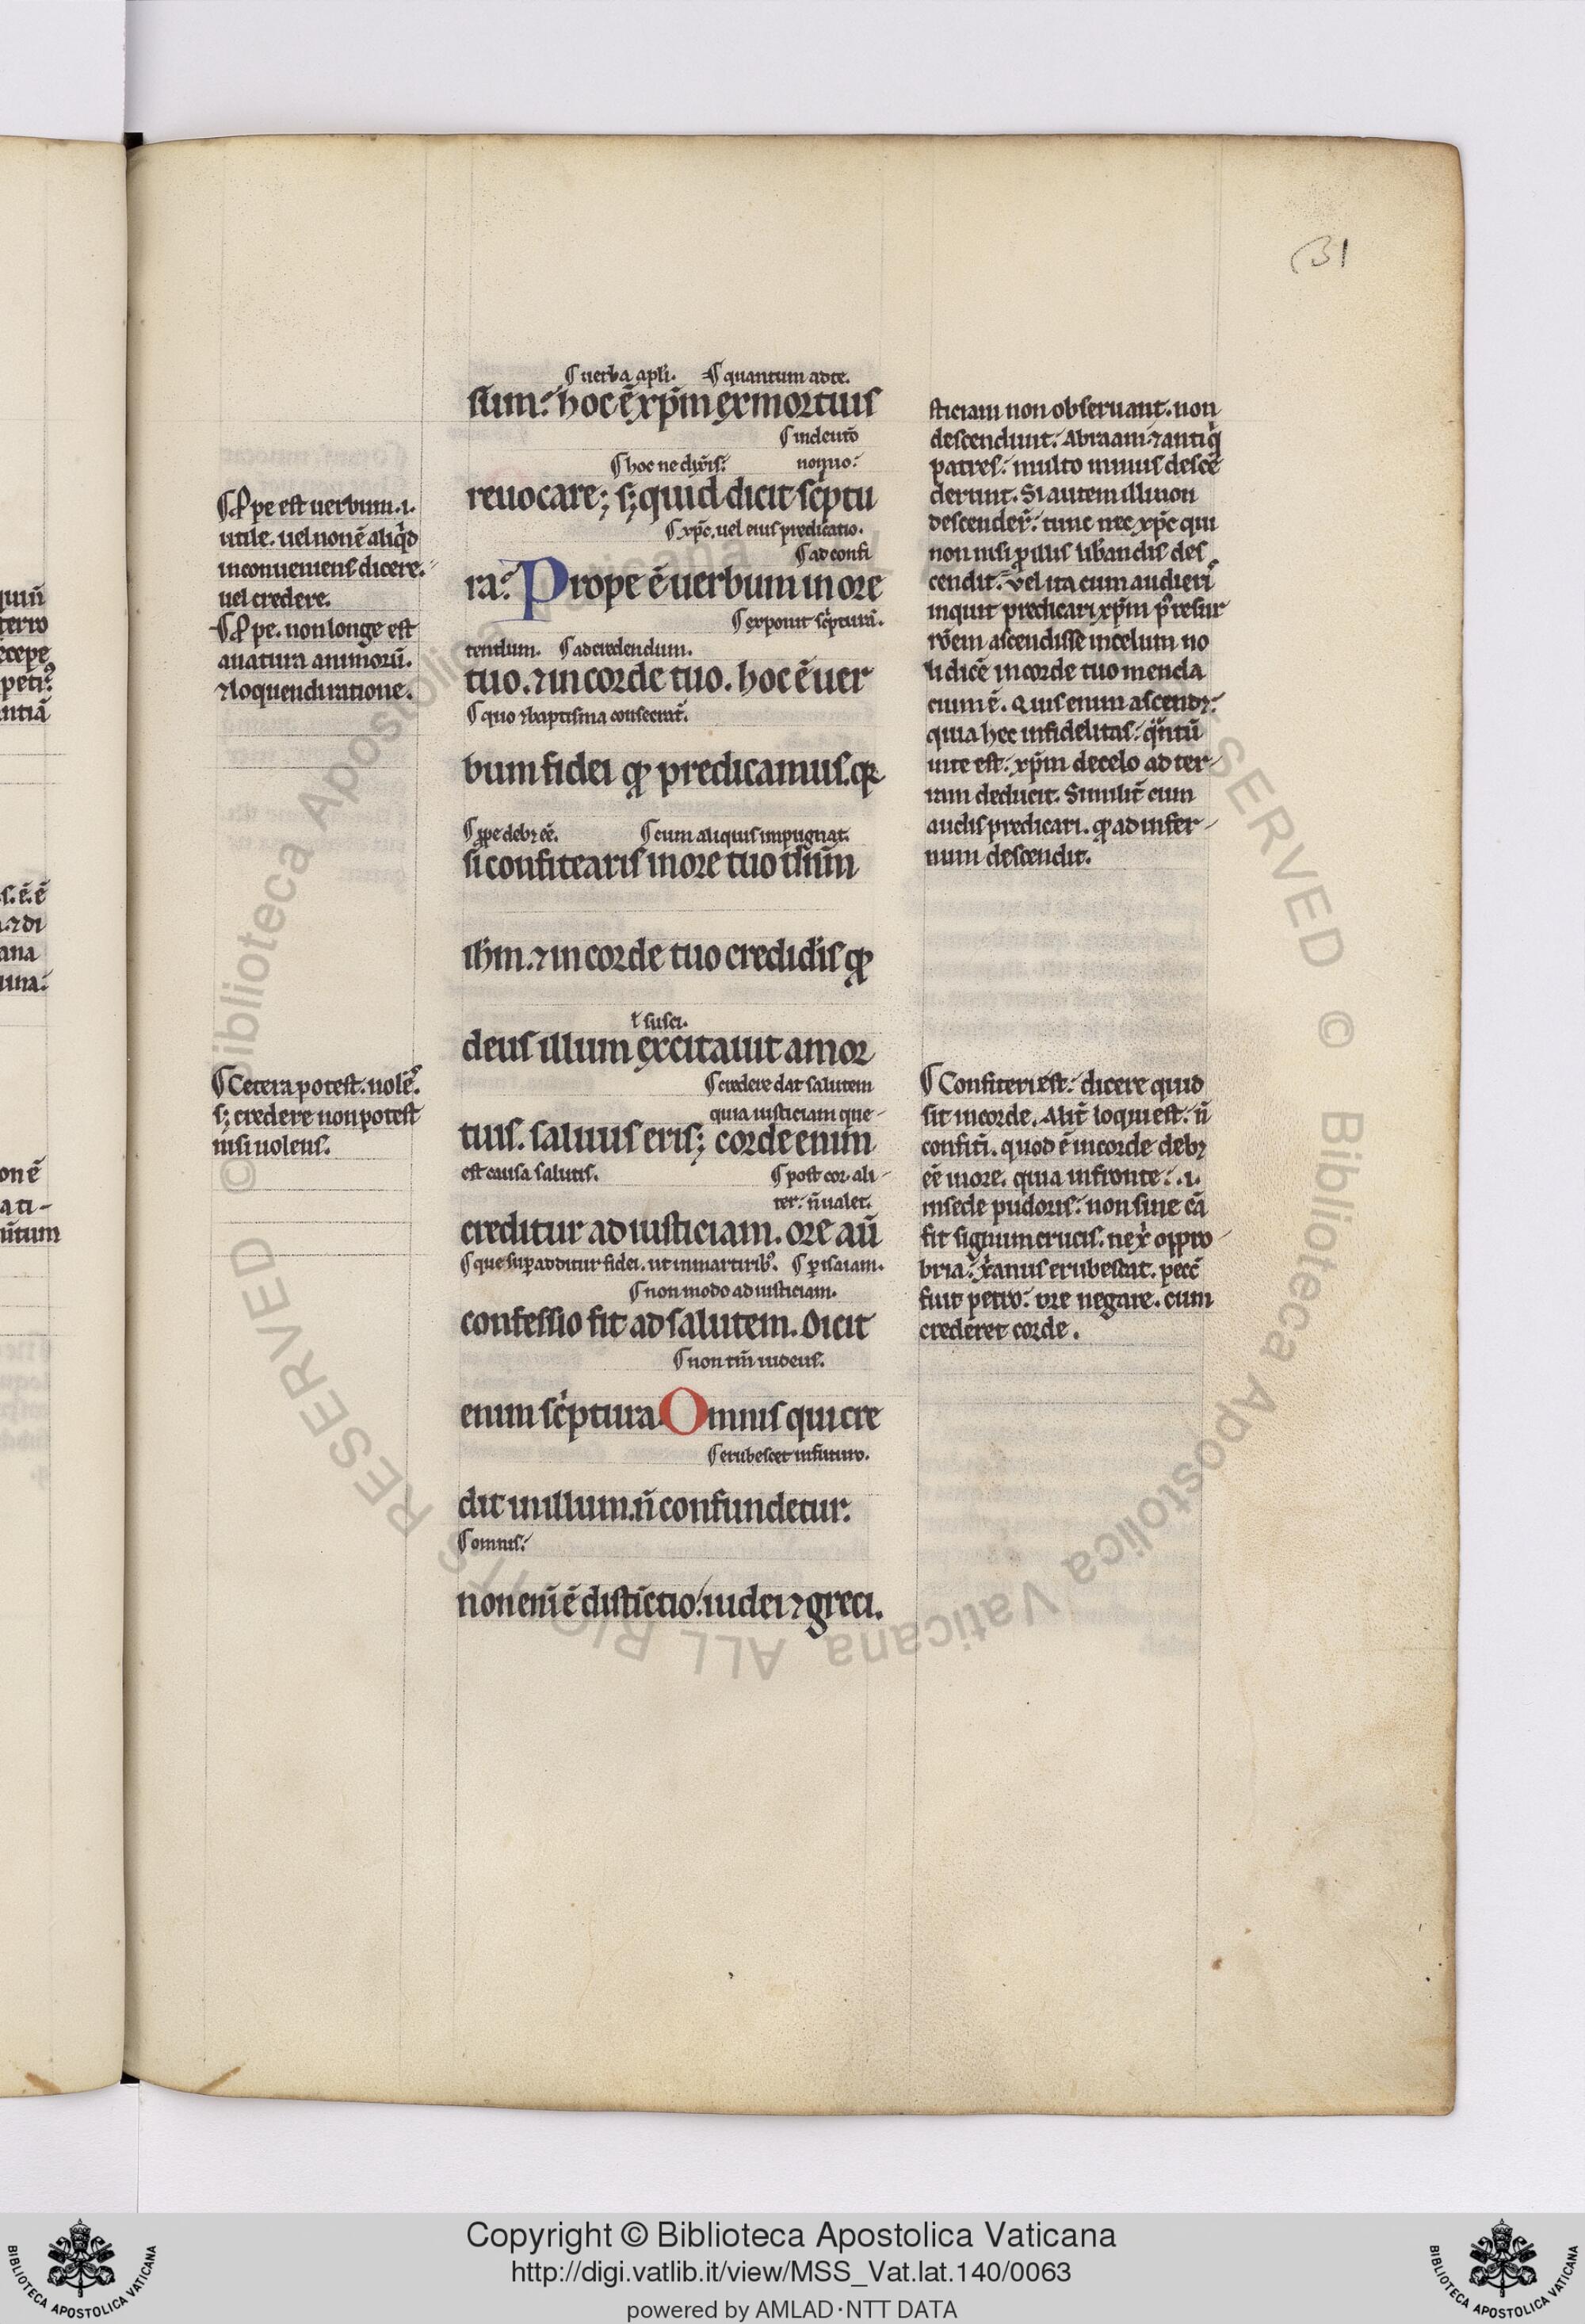 31
¶ uerba apli. ¶ quantum ad te.
sum. hoc ē xp̄m ex mortuis
¶ in deut̄o
¶ hoc ne dix̄is. nomio.
reuocare; s; quid dicit sc̄ptu
¶ xp̄c. uel eius predicatio.
¶ ad confi
ra. Prope ē uerbum in ore
¶ exponit sc̄pturā.
tendum. ¶ ad credendum.
tuo. ⁊ in corde tuo. hoc ē uer
¶ quo ⁊ baptisma consecrat̄.
bum fidei qd predicamus. qr
¶ ꝓpe debꝫ eē. ¶ cum aliquis impugnat.
si confitearis in ore tuo dn̄m
ih̄m. ⁊ in corde tuo credid̄is qd
ł susci.
deus illum excitauit a mor
¶ credere dat salutem
quia iusticiam que
tuis. saluus eris; corde enim
est causa salutis. ¶ post cor. ali
ter. n̄ ualet.
creditur ad iusticiam. ore aū
¶ que suꝑadditur fidei. ut in martiribꝯ. ¶ ꝑ isaiam.
¶ non modo ad iusticiam.
confessio fit ad salutem. Dicit
¶ non tm̄ iudeus.
enim sc̄ptura. Omnis qui cre
¶ erubescet in futuro.
dit in illum. n̄ confundetur.
¶ omnis.
non eni ē distīctio. iudei ⁊ greci.
¶ Ꝓpe est uerbum .i.
utile. uel non ē aliqd
inconueniens dicere.
uel credere.
¶ Ꝓpe. non longe est
a natura animorū.
⁊ loquendi ratione.
¶ Cetera potest. nolēs.
s; credere non potest
nisi uolens.
sticiam non obseruant. non
descendunt. Abraam ⁊ antiqi
patres. multo minus descē
derunt. Si autem illi non
descender̄. tunc nec xp̄c qui
non nisi ꝓ illis lib̄andis des
cendit. Vel ita cum audieris
inquit predicari xp̄m p̄ resur
rōem ascendisse in celum no
li dicē in corde tuo menda
cium ē. Quis enim ascendꝫ.
quia hec infidelitas. qn̄tū
in te est. xp̄m de celo ad ter
ram deducit. Similit̄ cum
audis predicari. qd ad infer
num descendit.
¶ Confiteri est. dicere quod
sit in corde. Alit̄ loqui est. n̄
confit̄i. quod ē in corde debꝫ
eē in ore. quia in fronte. .i.
in sede pudoris. non sine cā
fit signum crucis. ne xi oppro
bria. xianus erubescat. pecc̄
fuit petro. ore negare. cum
crederet corde.
Copyright © Biblioteca Apostolica Vaticana
http://digi.vatlib.it/view/MSS_Vat.lat.140/0063
powered by AMLAD·NTT DATA
BIBLIOTECA APOSTOLICA VATICANA
BIBLIOTECA APOSTOLICA VATICANA
© Biblioteca Apostolica Vaticana ALL RIGHTS RESERVED